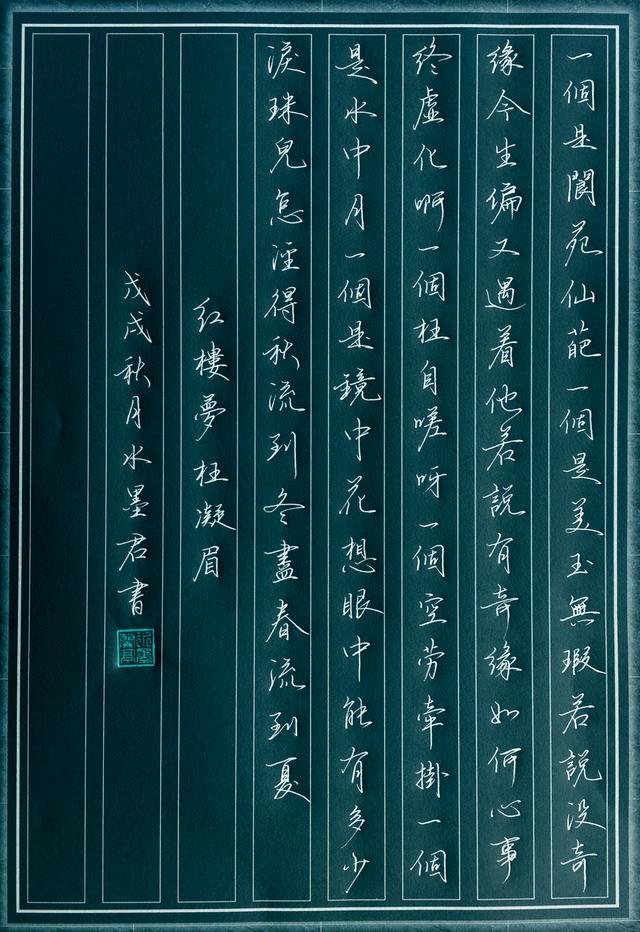 一個是閬苑仙葩一個是美玉無瑕若說沒奇
緣今生偏又遇着他若說有奇緣如何心事
終虛化啊一個枉自嗟呀一個空勞牽掛一個
是水中月一個是鏡中花想眼中能有多少
淚珠兒怎淫得秋流到冬盡春流到夏
紅樓夢枉凝眉
戊戌秋月水墨君書